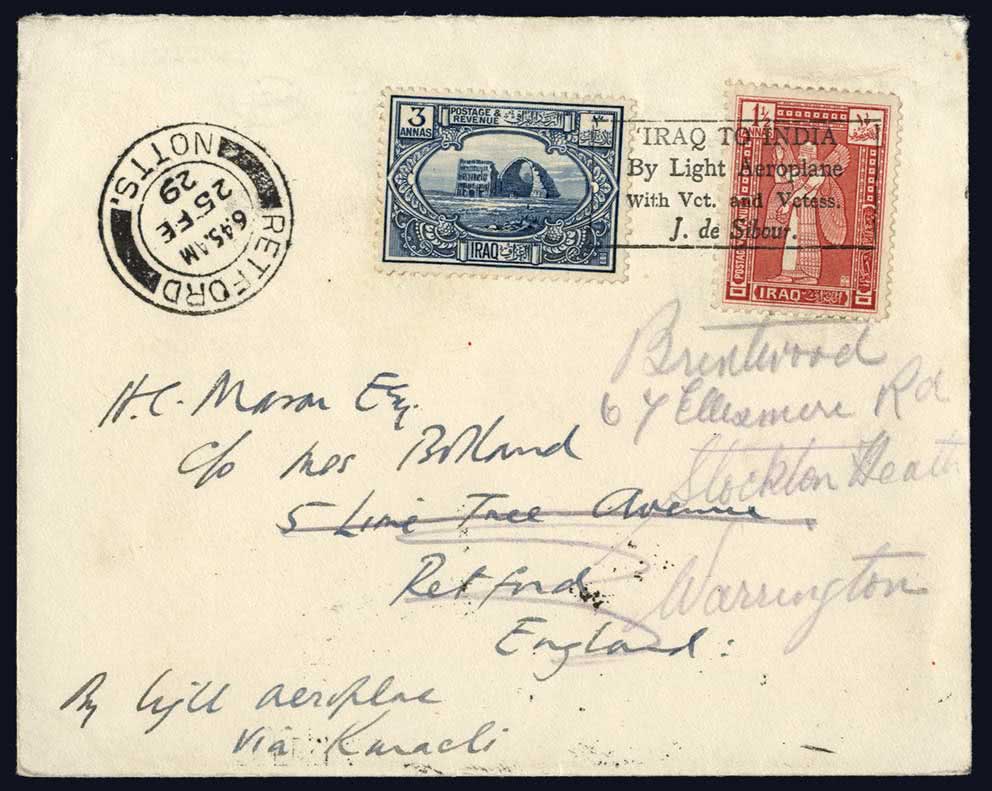 3
ANNAS
POSTAGE &
REVENUE
IRAQ
1½
ANNAS
POSTAGE
IRAQ
'IRAQ TO INDIA
By Light Aeroplane
with Vct. and Vctess.
J. de Sibour.
RETFORD
NOTTS.
6.45.AM
25 FE
29
H.C. Mason Esq.
c/o Mrs Bolland
5 Lime Tree Avenue
Retford
England:
Brentwood
67 Ellesmere Rd
Stockton Heath
Warrington
By light aeroplane
via Karachi